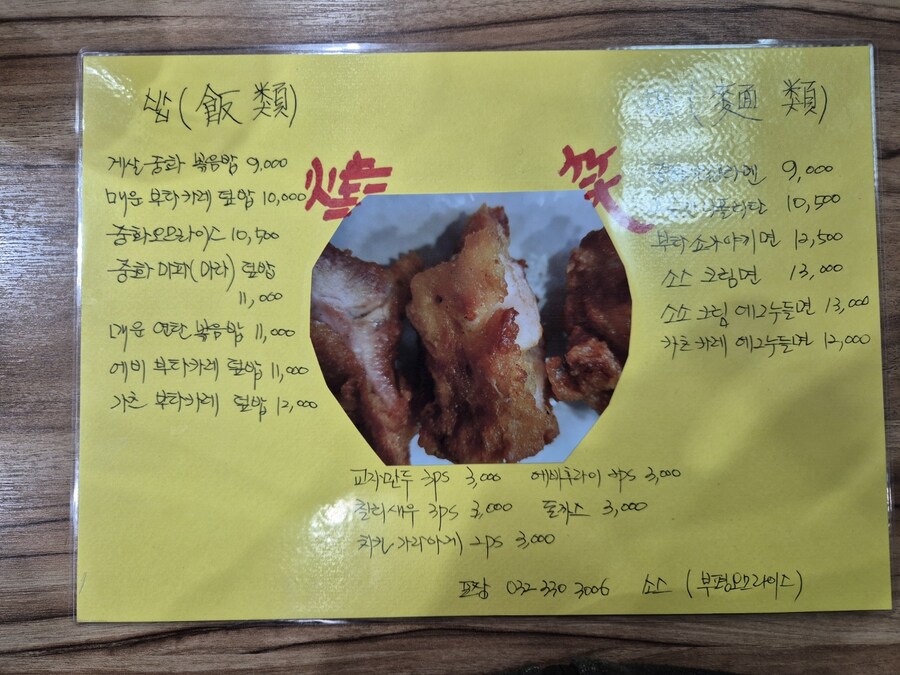 밥(飯類)
게살 중화 볶음밥 9,000
매운 부타카레 덮밥 10,000
중화오므라이스 10,500
중화 마파(마라) 덮밥
11,000
매운 연탄 볶음밥 11,000
에비 부타카레 덮밥 11,000
가츠 부타카레 덮밥 12,000
(麵類)
라멘 9,000
나폴리탄 10,500
부타 쇼가야키면 12,500
소스 크림면 13,000
소스 크림 에그누들면 13,000
가츠카레 에그누들면 12,000
笑
교자만두 3ps 3,000 에비후라이 3ps 3,000
칠리새우 3ps 3,000 돈까스 3,000
치킨 가라아게 2ps 3,000
포장 032 330 3006 소스 (부평오므라이스)